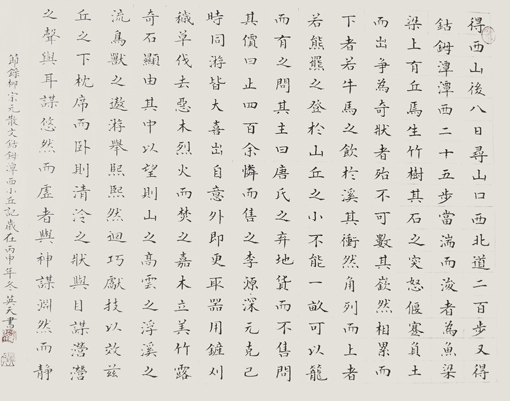 得西山後八日尋山口西北道二百步又得
鈷鉧潭潭西二十五步當湍而浚者為魚梁
梁上有丘焉生竹樹其石之突怒偃蹇負土
而出爭為奇狀者殆不可數其嶔然相累而
下者若牛馬之飲於溪其衝然角列而上者
若熊羆之登於山丘之小不能一畝可以籠
而有之問其主曰唐氏之棄地貨而不售問
其價曰止四百余憐而售之李源深元克己
時同游皆大喜出自意外即更取器用鏟刈
穢草伐去惡木烈火而焚之嘉木立美竹露
奇石顯由其中以望則山之高雲之浮溪之
流鳥獸之遨游舉熙熙然迴巧獻技以效茲
丘之下枕席而卧則清泠之狀與目謀瀯瀯
之聲與耳謀悠然而虛者與神謀淵然而靜
節錄柳宗元散文鈷鉧潭西小丘記歲在丙申年冬英天書